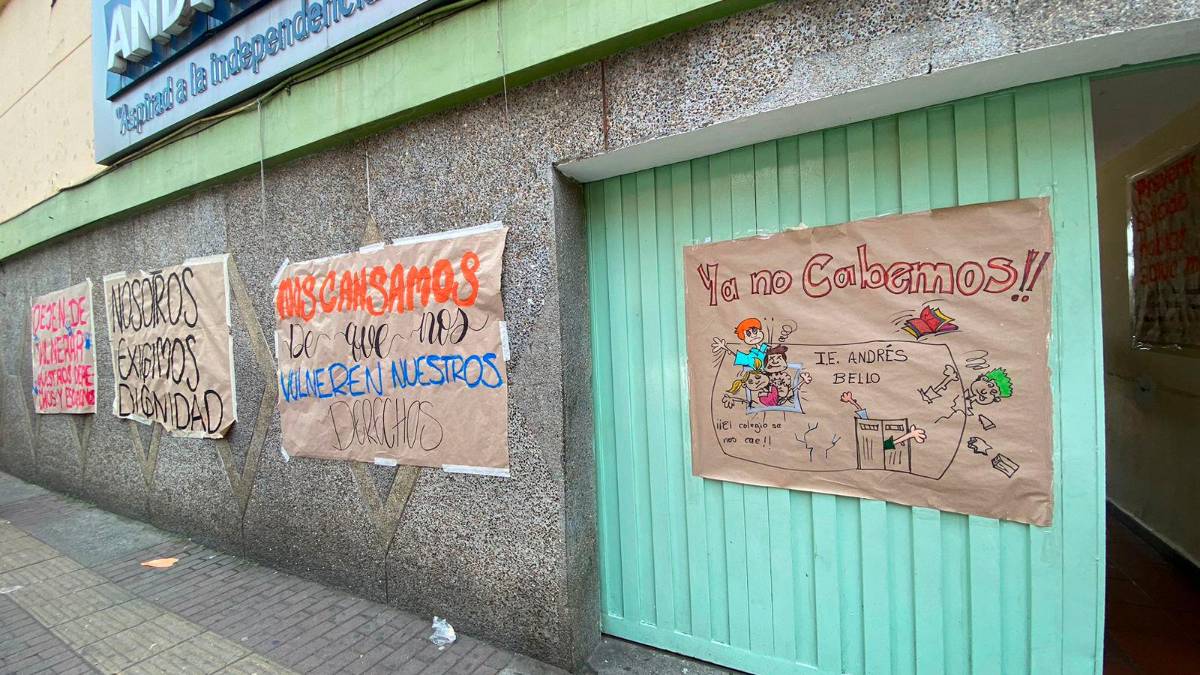 AND
"Aspirad a la independencia
DEJEN DE
VULNERAR
NUESTROS
NOSOTROS
EXIGIMOS
DIGNIDAD
NOS CANSAMOS
De que nos
VULNEREN NUESTROS
DERECHOS
Ya no Cabemos!!
I.E. ANDRÉS
BELLO
¡¡El colegio se
nos cae!!